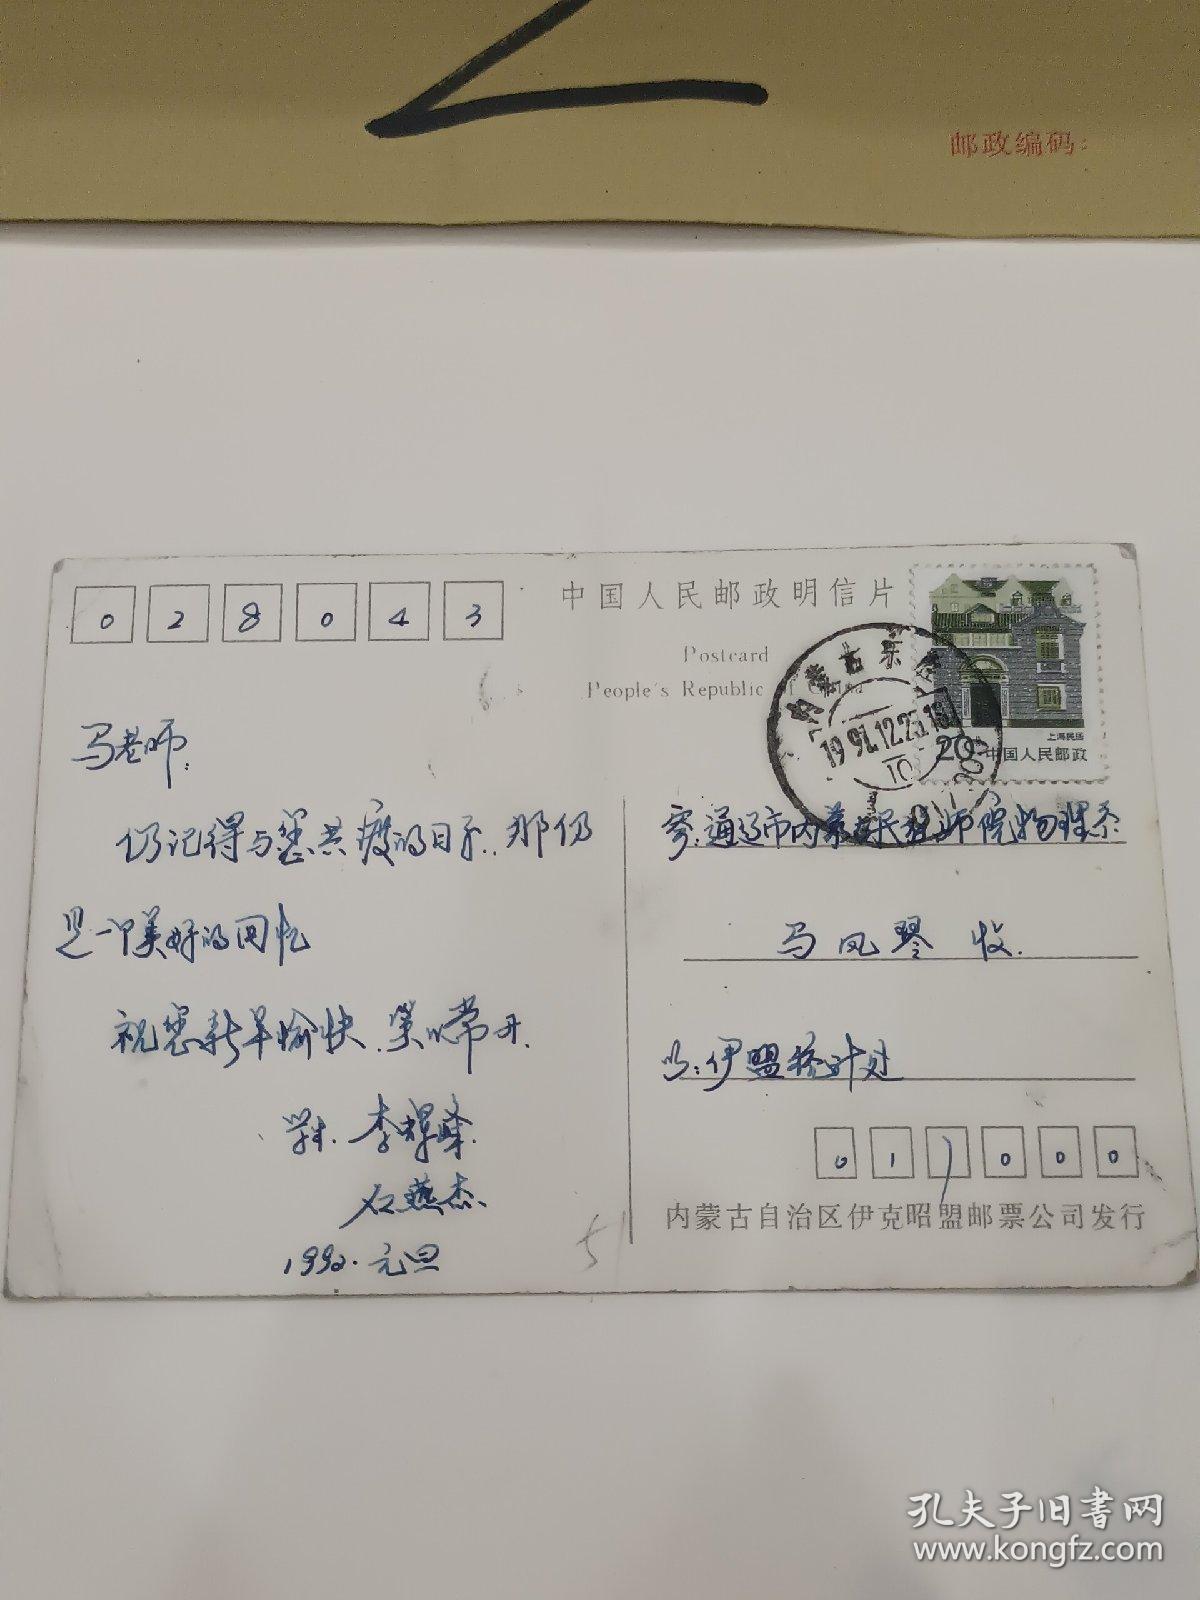 邮政编码：
028043
中国人民邮政明信片
Postcard
People's Republic of China
上海民居
20 中国人民邮政
内蒙古东
1991.12.25.18
马老师：
仍记得与您共度的日子，那仍
是一个美好的回忆
祝您新年愉快，笑口常开.
学生. 李
石燕杰
1992.元旦
寄：通辽市内蒙古民族师院物理系
马凤琴 收.
伊盟统计处
017000
内蒙古自治区伊克昭盟邮票公司发行
51
孔夫子旧书网
www.kongfz.com